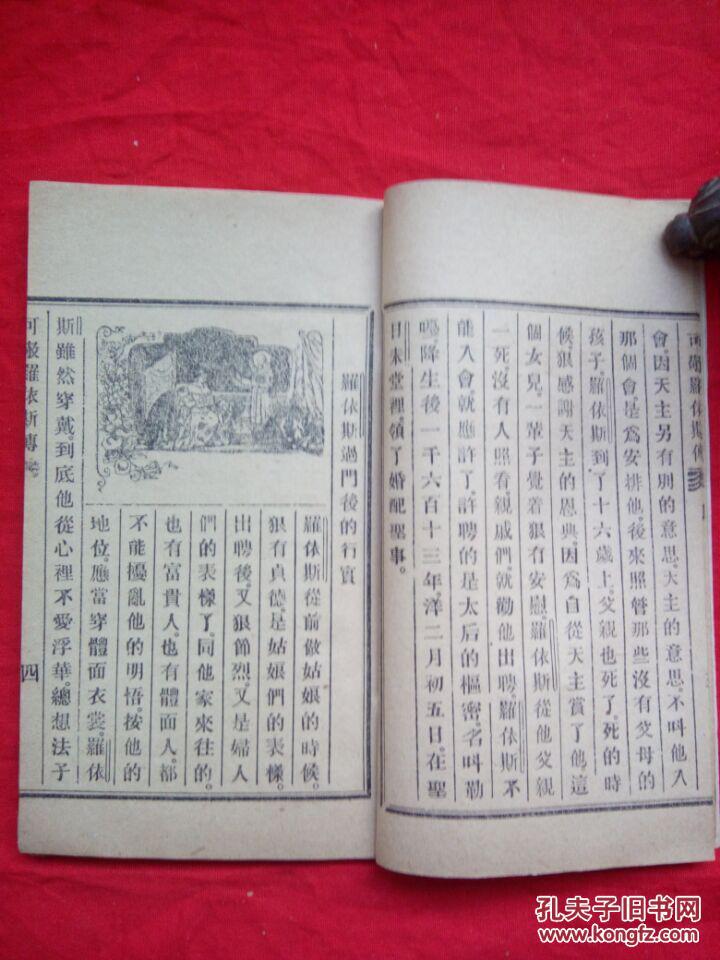 會。因天主另有別的意思。天主的意思。不叫他入
那個會。是爲安排他。後來照管那些沒有父母的
孩子。羅依斯到了十六歲上。父親也死了。死的時
候狠感謝天主的恩典。因爲自從天主賞了他這
個女兒。一輩子覺着狠有安慰。羅依斯從他父親
一死。沒有人照看。親戚們。就勸他出聘。羅依斯不
能入會就應許了。許聘的是太后的樞密。名叫勒
嗎。降生後一千六百十三年。洋二月初五日。在聖
日末堂裡領了婚配聖事。
羅依斯過門後的行實
羅依斯從前做姑娘的時候。
狠有貞德。是姑娘們的表樣。
出聘後。又狠節烈。又是婦人
們的表樣了。同他家來往的。
也有富貴人。也有體面人。都
不能擾亂他的明悟。按他的
地位。應當穿體面衣裳。羅依
斯雖然穿戴。到底他從心裡不愛浮華。總想法子
可敬羅依斯傳
四
孔夫子旧书网
www.kongfz.com